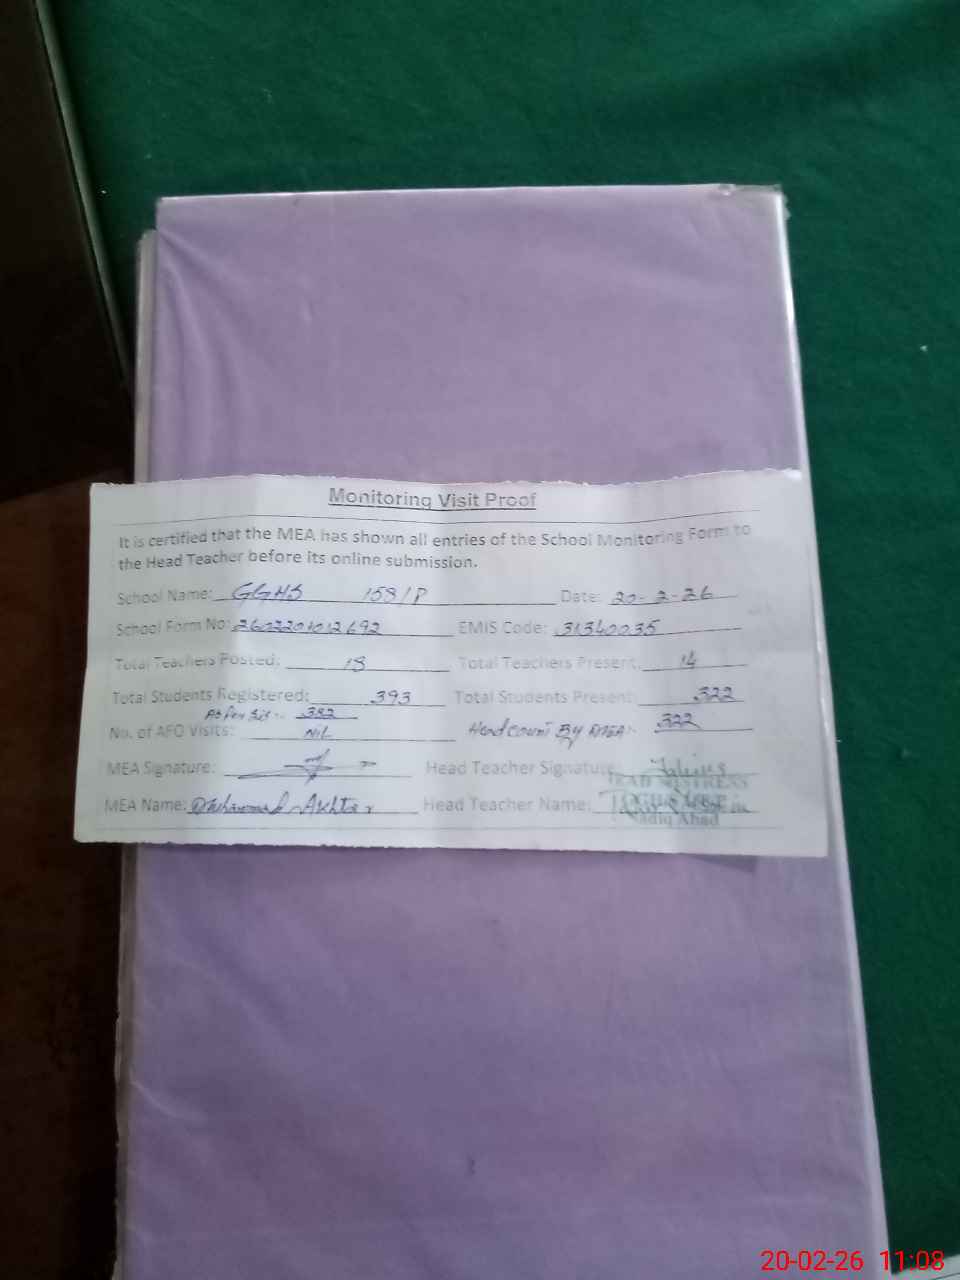 Monitoring Visit Proof
It is certified that the MEA has shown all entries of the School Monitoring Form to
the Head Teacher before its online submission.
School Name: GGHS 158/P Date: 20-2-26
School Form No: 2602201012692 EMIS Code: 31340035
Total Teachers Posted: 18 Total Teachers Present: 14
Total Students Registered: 393 Total Students Present: 322
As Per Sis:- 382
No. of AFO Visits: Nil Head count By MEA:- 322
MEA Signature: Head Teacher Signature:
HEAD MISTRESS
MEA Name: Muhammad Akhter Head Teacher Name:
Sadiq Abad
20-02-26 11:08